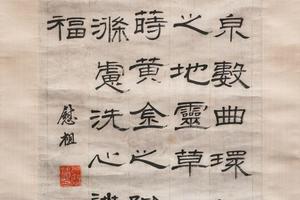 泉數曲環
之地靈草
蒔黃金之
滌慮洗心
福
慰祖